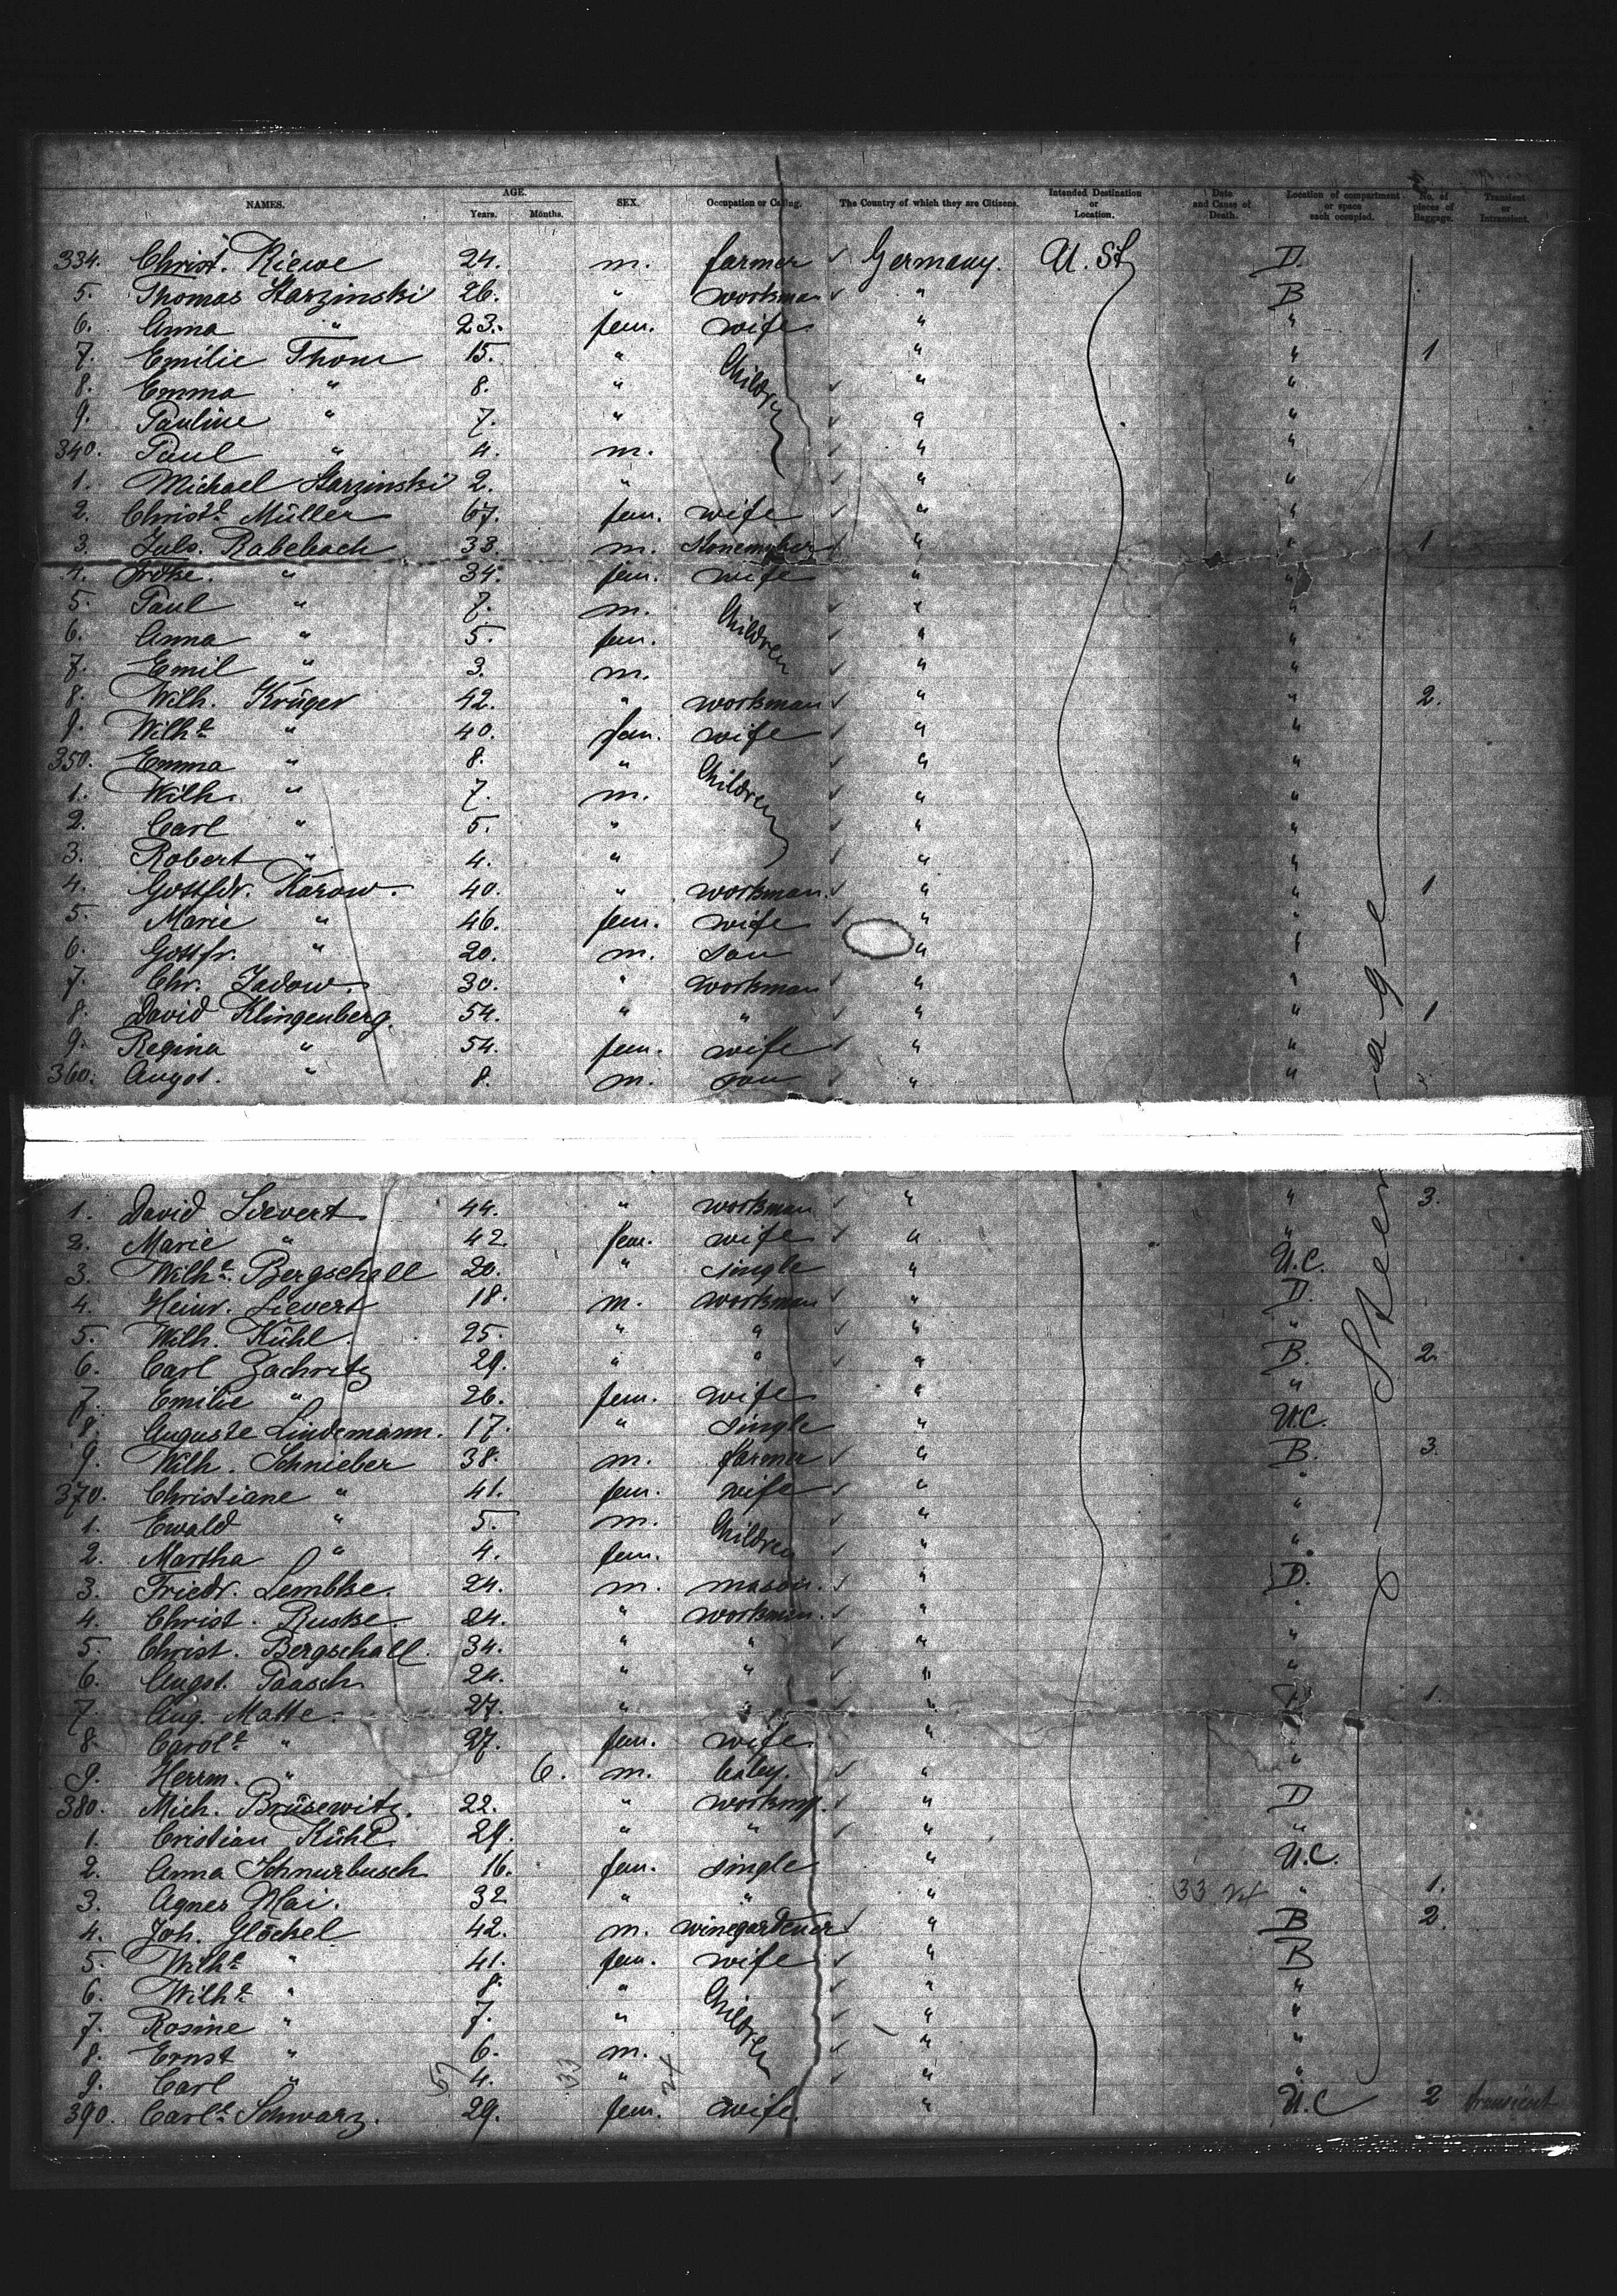 NAMES. AGE. Years. Months. SEX. Occupation or Calling. The Country of which they are Citizens. Intended Destination or Location. Date and Cause of Death. Location of compartment or space each occupied. No. of pieces of Baggage. Transient or Intransient.
334. Christ. Riewe 24. m. farmer ✓ Germany. U. St. D.
5. Thomas Starzinski 26. " workman ✓ " B
6. Anna " 23. fem. wife " "
7. Emilie Thom 15. " Children " " 1
8. Emma " 8. " ✓ " "
9. Pauline " 7. " ✓ " "
340. Paul " 4. m. ✓ " "
1. Michael Starzinski 2. " ✓ " "
2. Christe Müller 67. fem. wife ✓ " "
3. Juls. Rabebach 33. m. " " 1
4. Frdke. " 34. fem. wife " "
5. Paul " 7. m. Children ✓ " "
6. Anna " 5. fem. ✓ " "
7. Emil " 3. m. ✓ " "
8. Wilh. Krüger 42. " workman ✓ " " 2.
9. Wilhe " 40. fem. wife ✓ " "
350. Emma " 8. " Children ✓ " "
1. Wilh. " 7. m. ✓ " "
2. Carl " 5. " ✓ " "
3. Robert " 4. " ✓ " "
4. Gottfdr. Karow. 40. " workman. ✓ " " 1
5. Marie " 46. fem. wife ✓ " "
6. Gottfr. " 20. m. son " "
7. Chr. Jadow. 30. " workman ✓ " "
8. David Klingenberg. 54. " " ✓ " " 1
9. Regina " 54. fem. wife ✓ " "
360. Augst. " 8. m. son " "
1. David Sievert 44. " workman ✓ " " 3.
2. Marie " 42. fem. wife ✓ " "
3. Wilhe. Bergschall 20. " single " U.C.
4. Heinr. Sievert 18. m. workman ✓ " D.
5. Wilh. Kühl. 25. " " ✓ " "
6. Carl Zachritz 29. " " ✓ " B. 2.
7. Emilie " 26. fem. wife " "
8. Auguste Lindemann. 17. " single " U.C.
9. Wilh. Schnieber 38. m. farmer ✓ " B. 3.
370. Christiane " 41. fem. wife ✓ " "
1. Ewald " 5. m. Children ✓ " "
2. Martha " 4. fem. ✓ " "
3. Friedr. Lembke. 24. m. mason. ✓ " D.
4. Christ. Ruske. 24. " workman. ✓ " "
5. Christ. Bergschall. 34. " " ✓ " "
6. Augst. Paasch. 24. " " ✓ " "
7. Aug. Matte. 27. " " ✓ " 1.
8. Carole " 27. fem. wife. " "
9. Herrm. " 6. m. baby. ✓ " "
380. Mich. Brüsewitz. 22. " workm. ✓ " D
1. Cristian Kühl. 29. " " ✓ " "
2. Anna Schnurbusch 16. fem. single " U.C.
3. Agnes Mai. 32 " " " 33 " 1.
4. Joh. Glöckel 42. m. winegardener ✓ " B 2.
5. Wilhe " 41. fem. wife ✓ " B
6. Wilhe " 8. " Children ✓ " "
7. Rosine " 7. " ✓ " "
8. Ernst " 6. m. ✓ " "
9. Carl " 57 4. 33 " 24 ✓ " "
390. Carle Schwarz. 29. fem. wife. " U.C 2 transient
Steerage